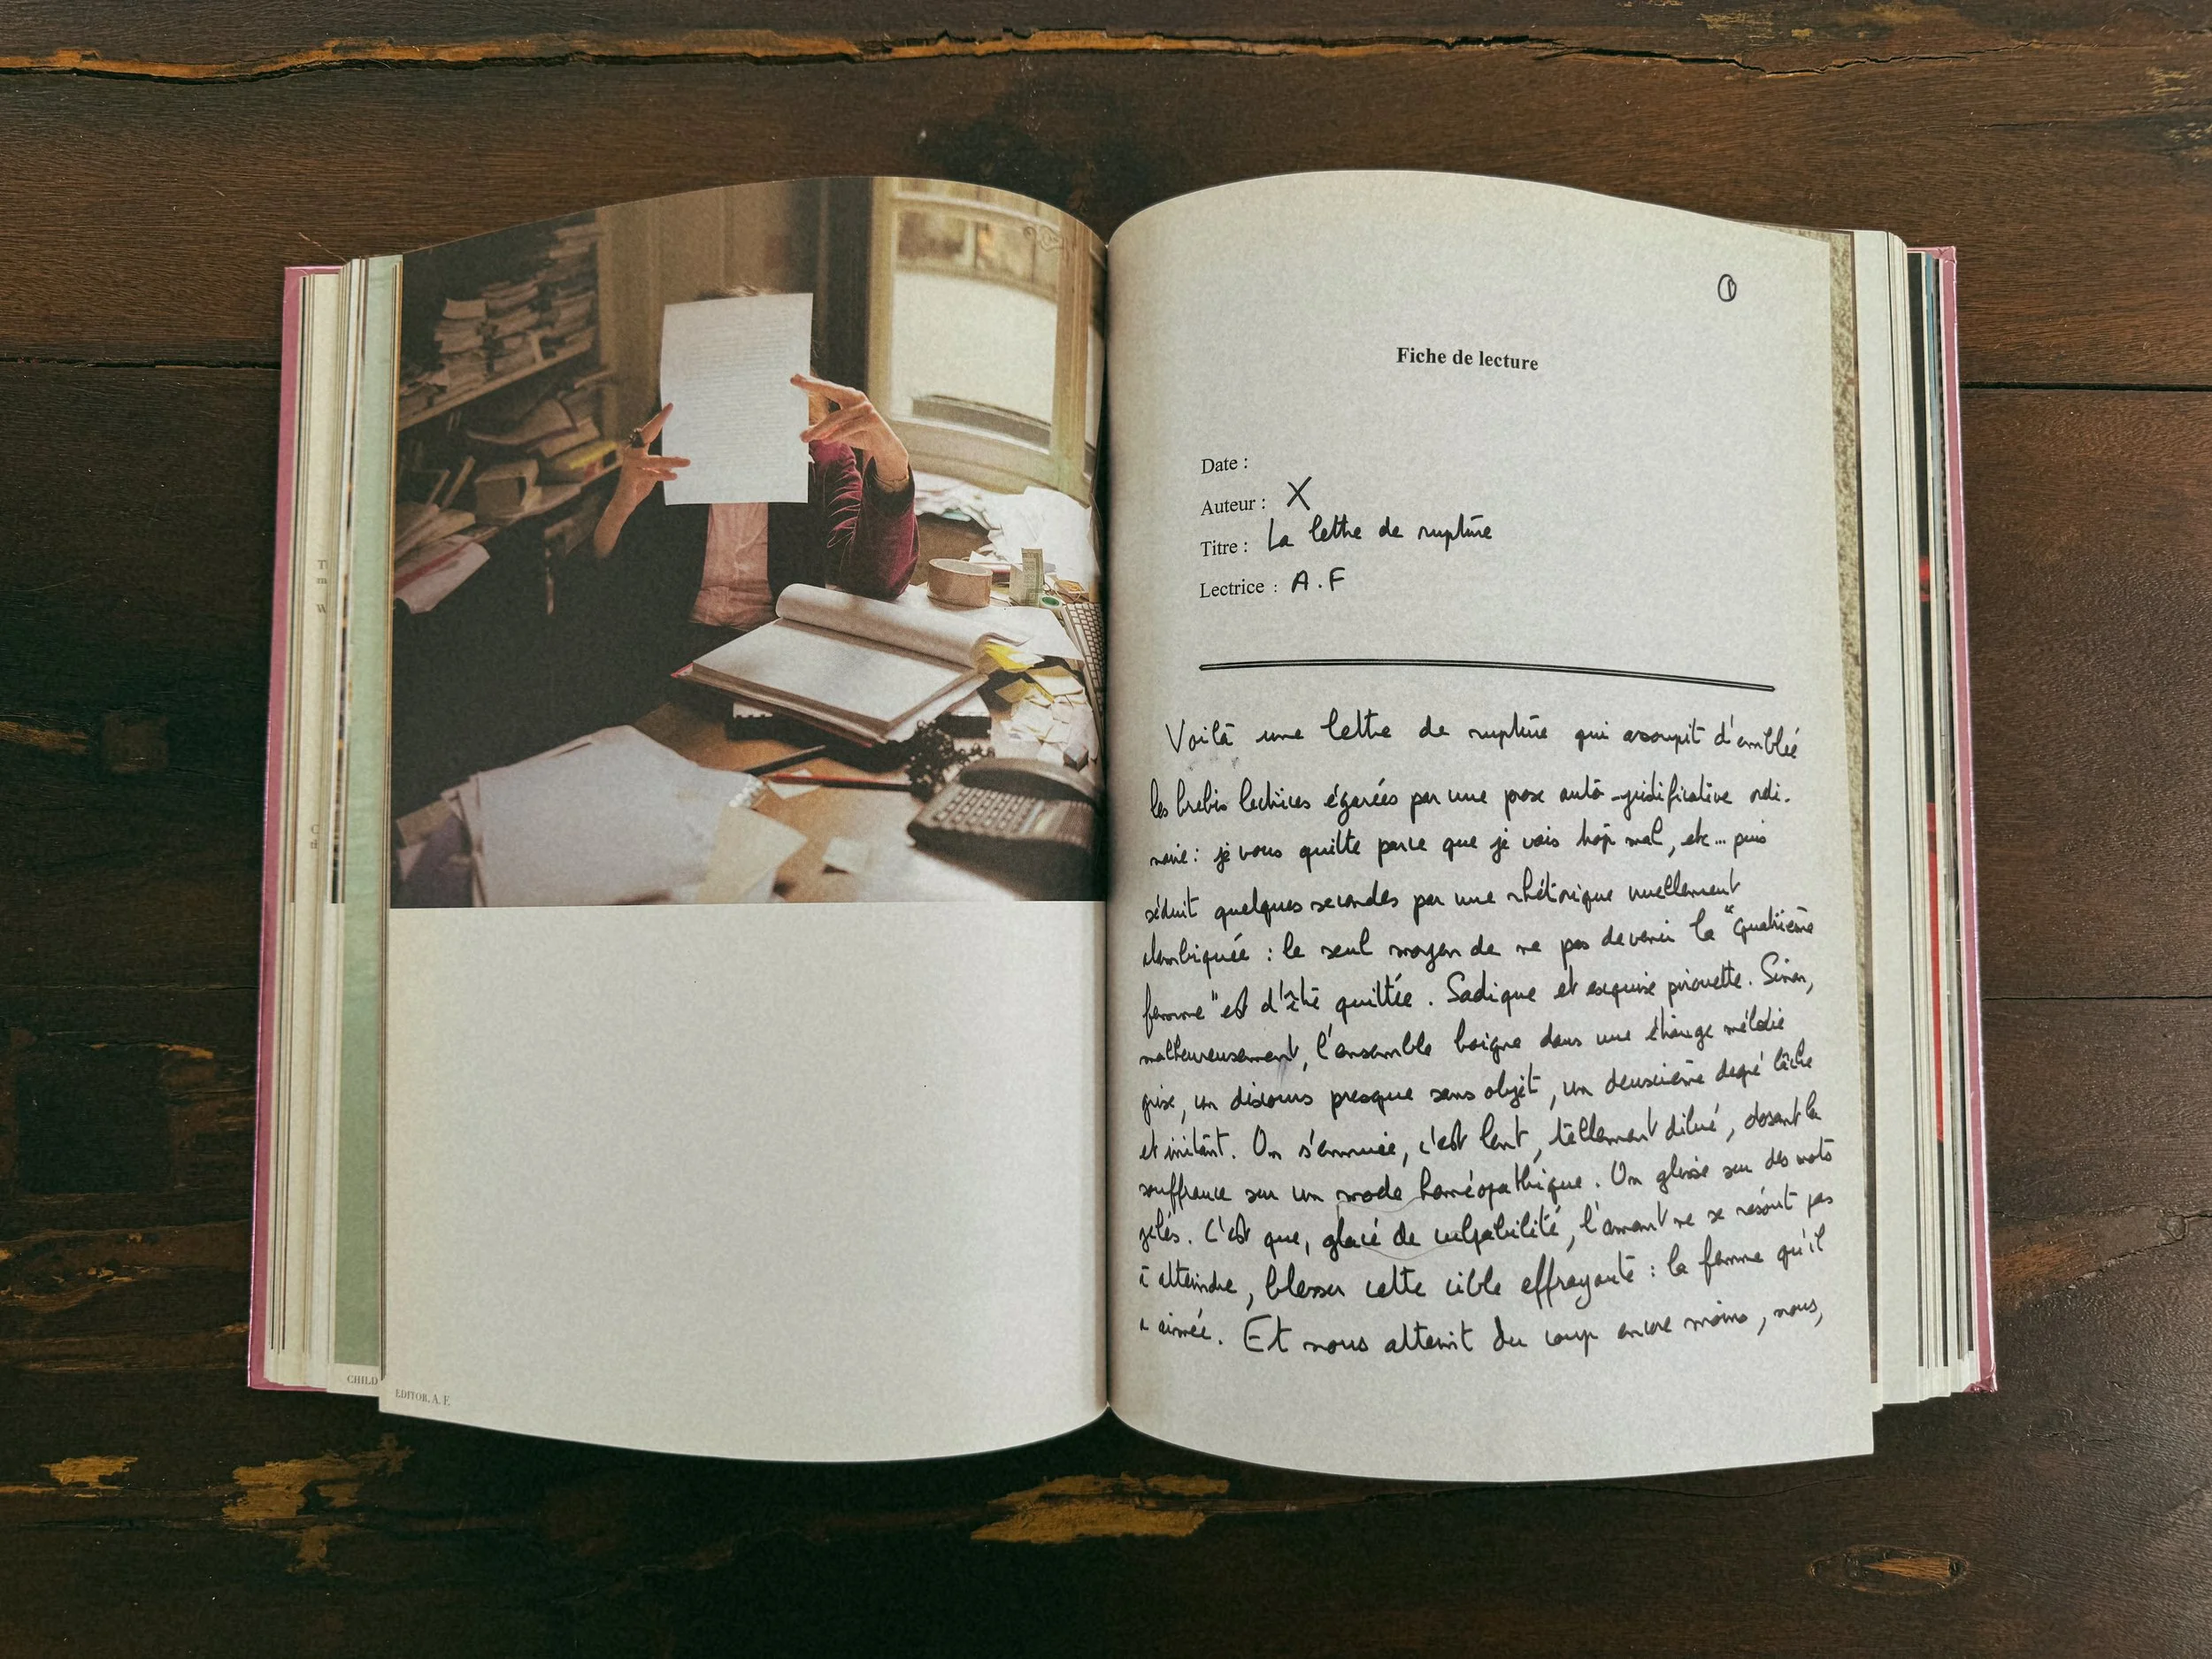 CHILD
EDITOR, A. F.
1
Fiche de lecture
Date :
Auteur : X
Titre : La lettre de rupture
Lectrice : A.F
Voilà une lettre de rupture qui assoupit d'emblée
les brebis lectrices égarées par une prose auto-justificative ordi-
naire : je vous quitte parce que je vais trop mal, etc... puis
séduit quelques secondes par une rhétorique cruellement
alambiquée : le seul moyen de ne pas devenir la "quatrième
femme" est d'être quittée. Sadique et exquise pirouette. Sinon,
malheureusement, l'ensemble baigne dans une étrange mélodie
grise, un discours presque sans objet, un deuxième degré lâche
et irritant. On s'ennuie, c'est lent, tellement dilué, dosant la
souffrance sur un mode homéopathique. On glisse sur des mots
gelés. C'est que, glacé de culpabilité, l'amant ne se résout pas
à atteindre, blesser cette cible effrayante : la femme qu'il
a aimée. Et nous atteint du coup encore moins, nous,